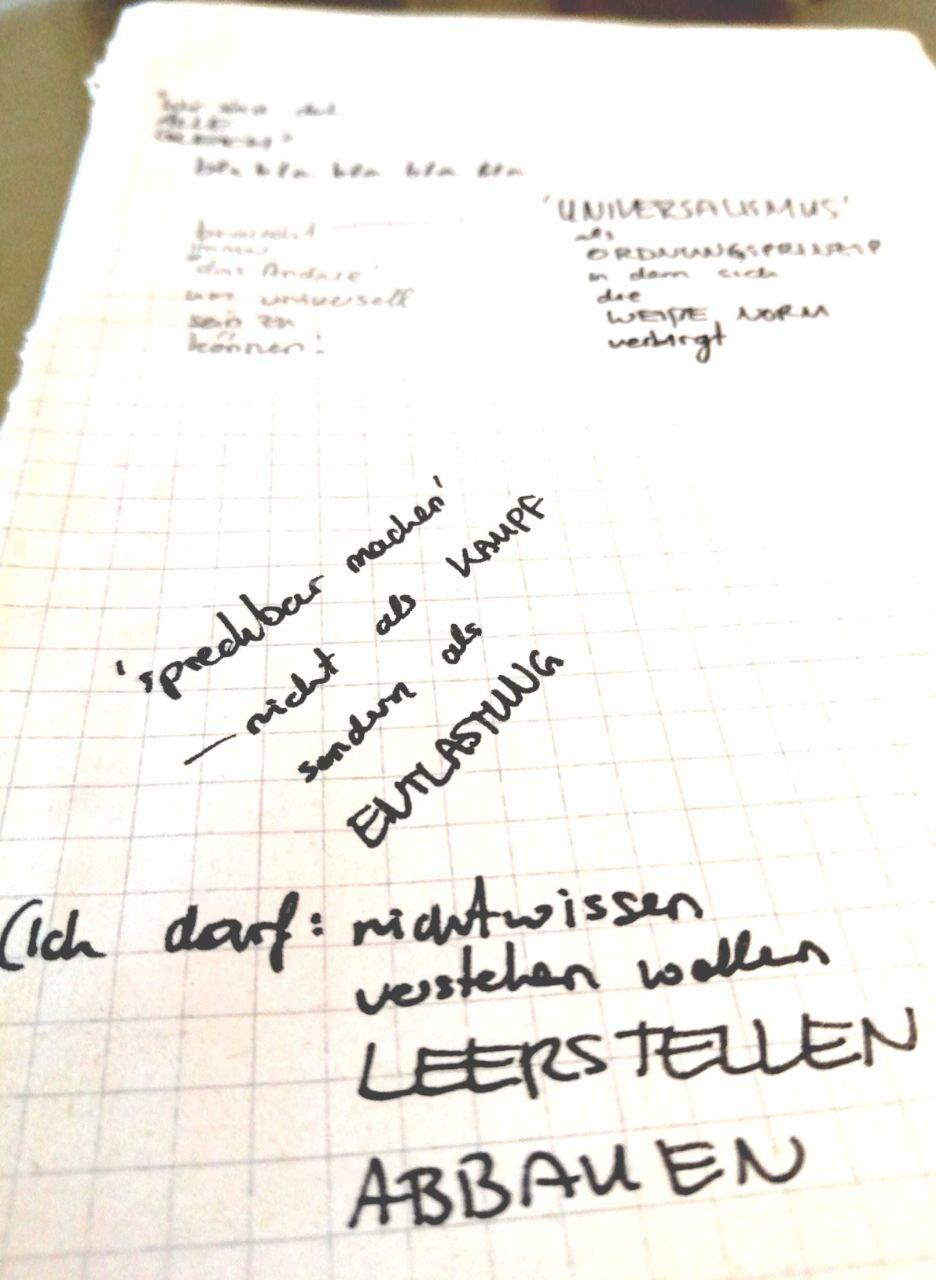 "Wir sind doch
ALLE
bla bla bla bla bla
braucht
immer
'das Andere'
um universell
sein zu
können!
'UNIVERSALISMUS'
als
ORDNUNGSPRINZIP
in dem sich
die
WEIßE NORM
verbirgt
'sprechbar machen'
— nicht als KAMPF
sondern als
ENTLASTUNG
(Ich darf: nichtwissen
verstehen wollen
LEERSTELLEN
ABBAUEN